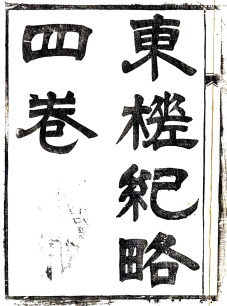 東槎紀略
四巻